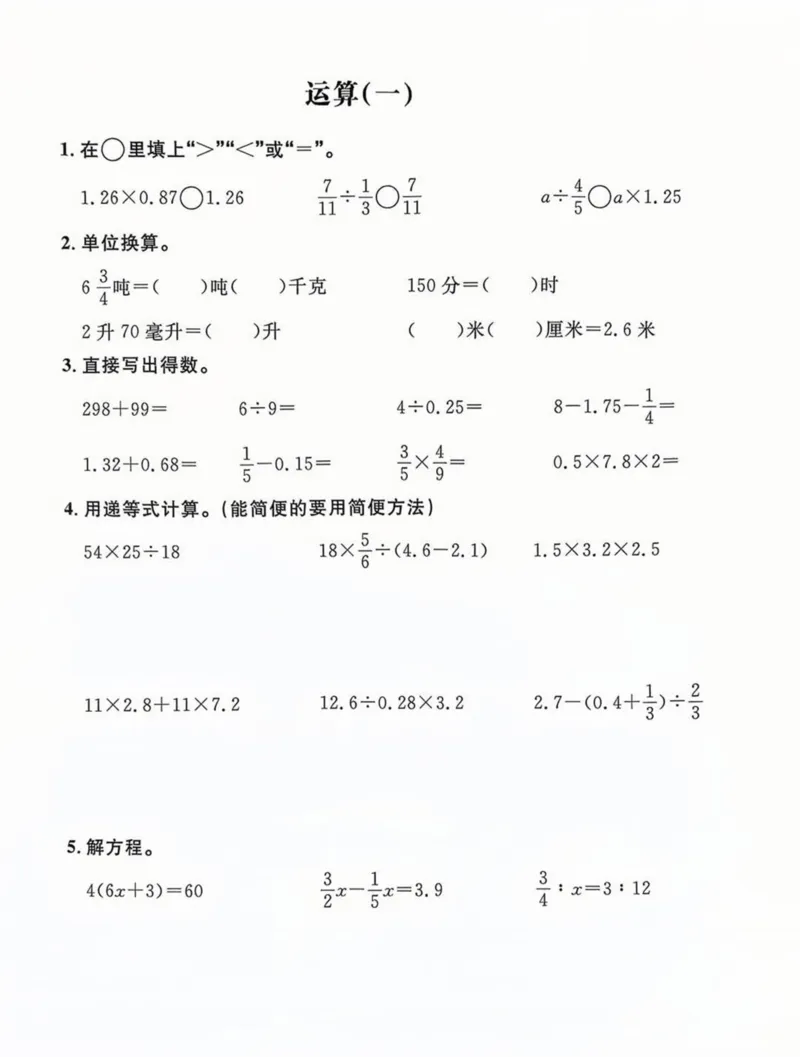 运算(一)
1. 在○里填上“>”“<”或“=”。
1.26×0.87○1.26 7/11÷1/3○7/11 a÷4/5○a×1.25
2. 单位换算。
6 3/4吨=( )吨( )千克 150 分=( )时
2 升 70 毫升=( )升 ( )米( )厘米=2.6 米
3. 直接写出得数。
298+99= 6÷9= 4÷0.25= 8-1.75-1/4=
1.32+0.68= 1/5-0.15= 3/5×4/9= 0.5×7.8×2=
4. 用递等式计算。(能简便的要用简便方法)
54×25÷18 18×5/6÷(4.6-2.1) 1.5×3.2×2.5
11×2.8+11×7.2 12.6÷0.28×3.2 2.7-(0.4+1/3)÷2/3
5. 解方程。
4(6x+3)=60 3/2x-1/5x=3.9 3/4∶x=3∶12